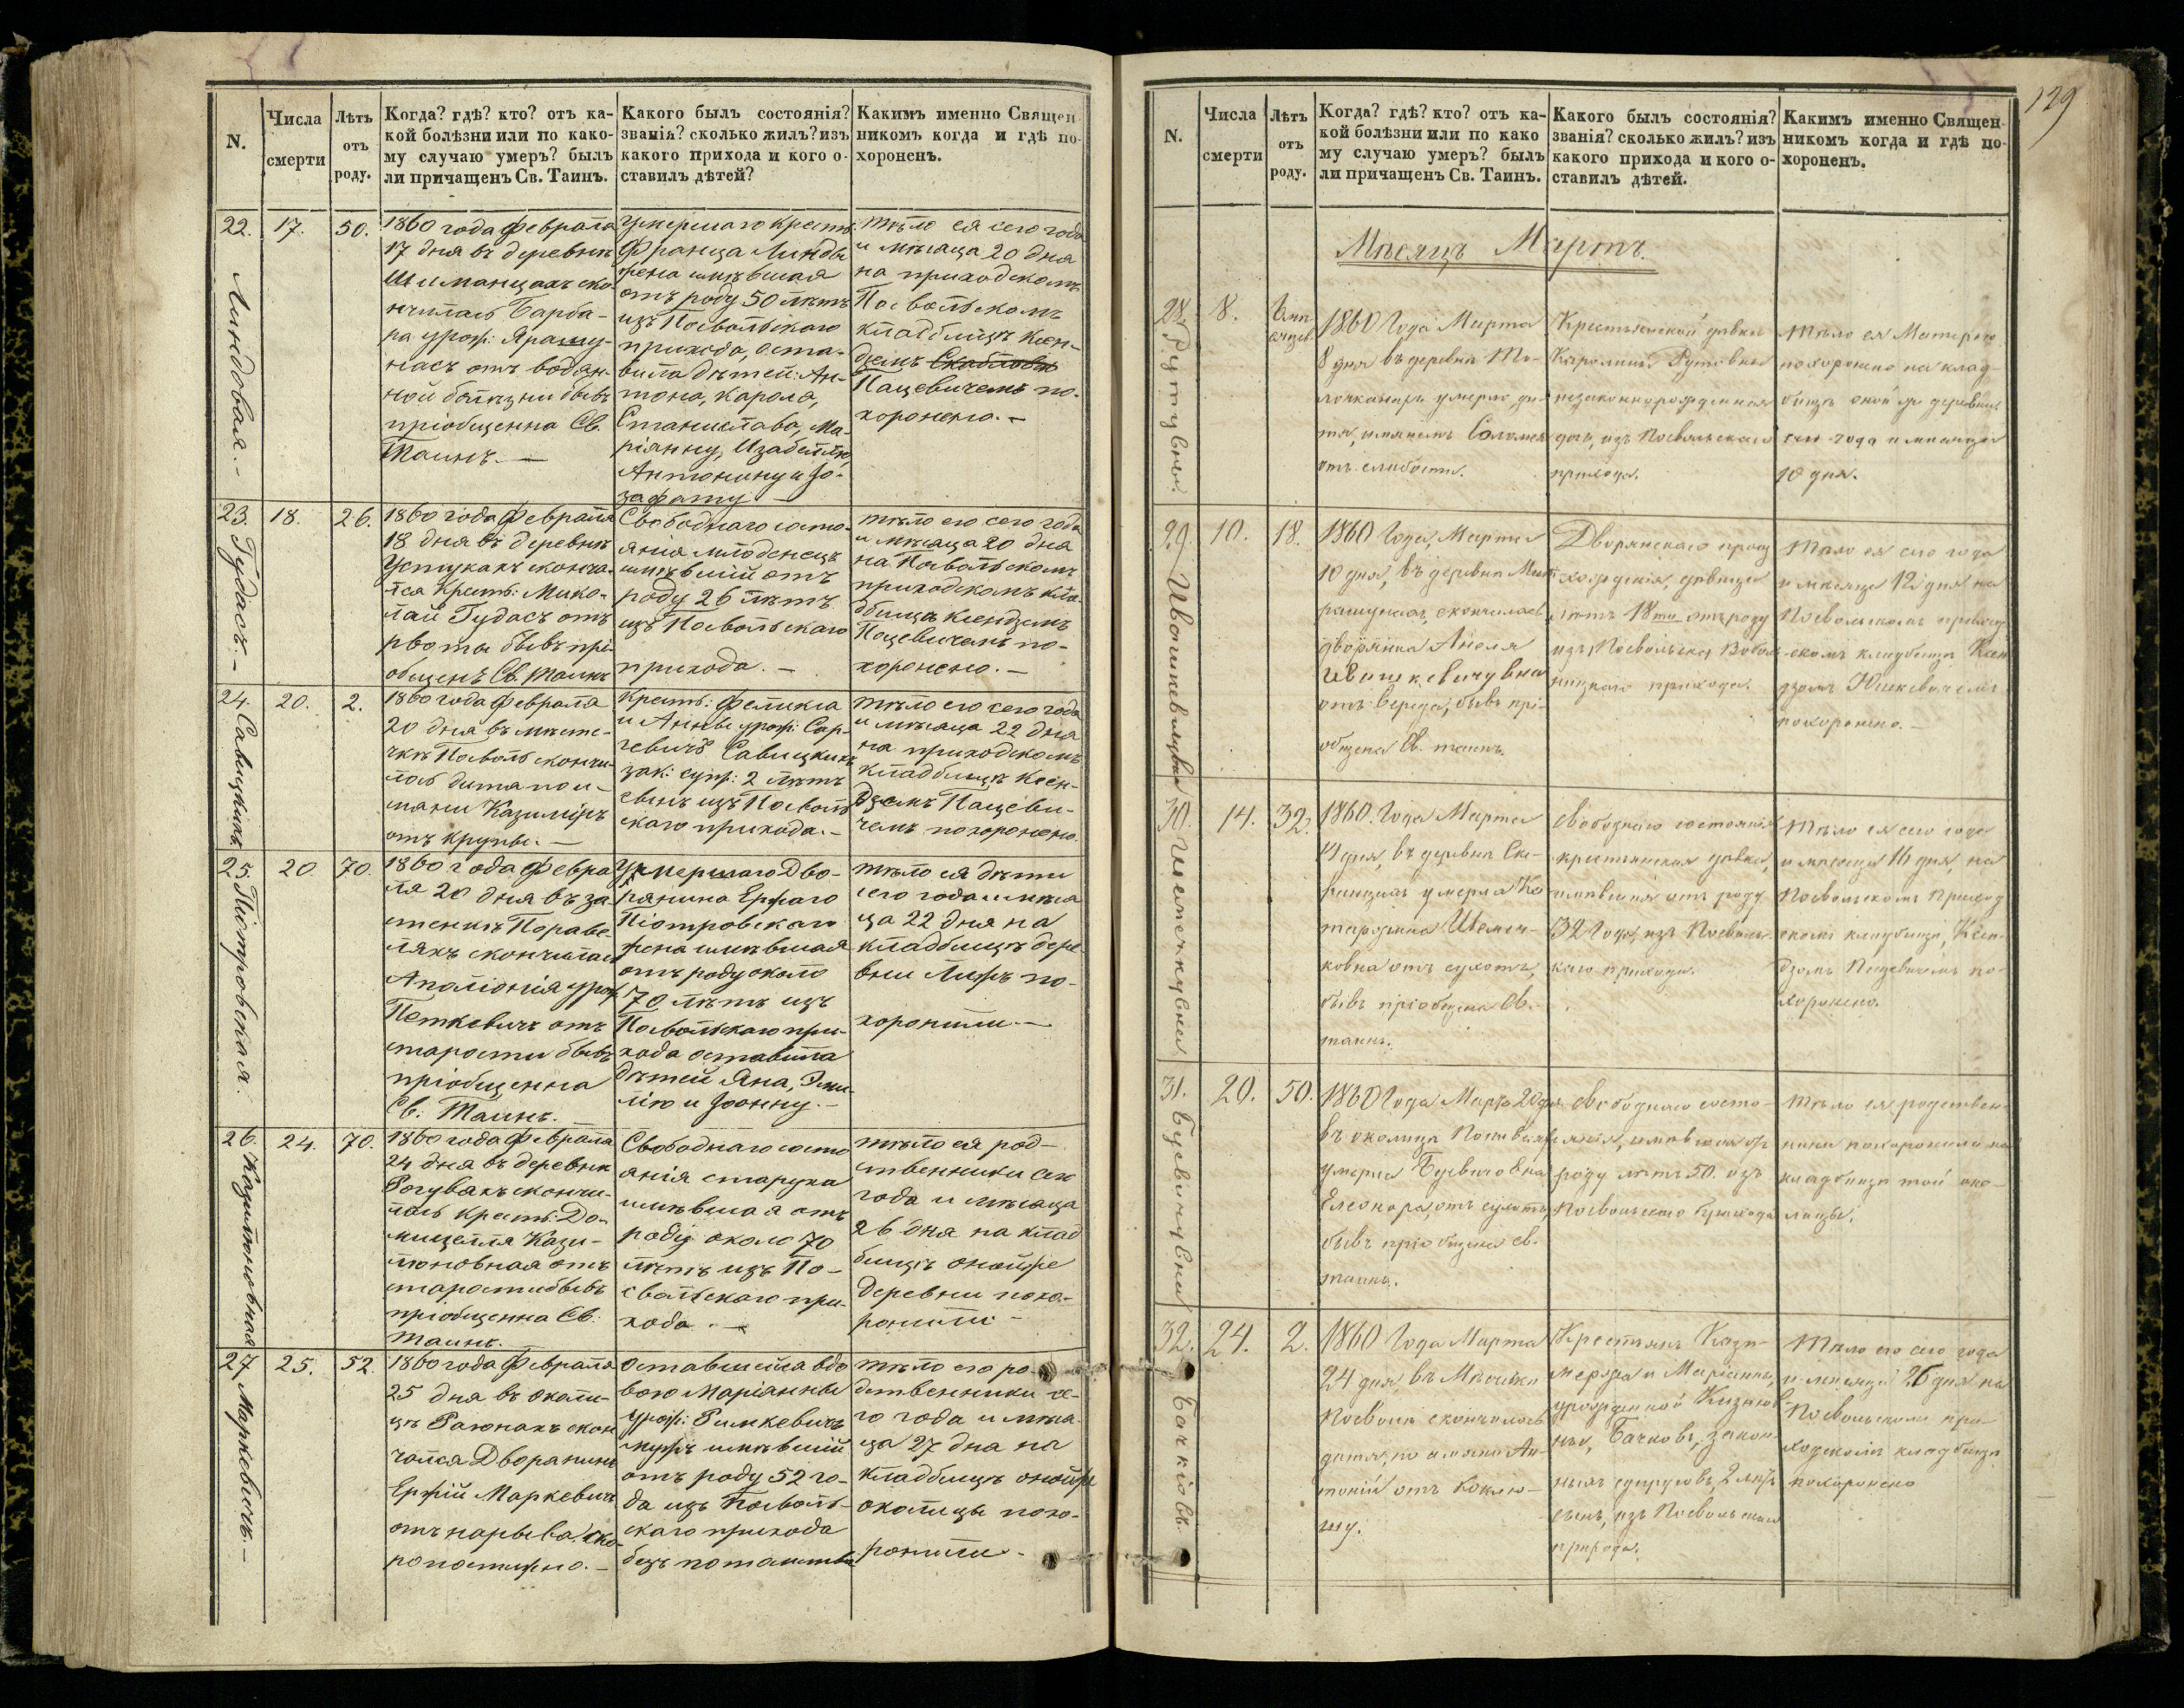 N.
Числа
смерти
Лѣтъ
отъ
роду.
Когда? гдѣ? кто? отъ ка-
кой болѣзни или по како-
му случаю умеръ? былъ
ли причащенъ Св. Таинъ.
Какого былъ состоянія?
званія? сколько жилъ? изъ
какого прихода и кого о-
ставилъ дѣтей?
Какимъ именно Священ
никомъ когда и гдѣ по-
хороненъ.
22.
Линдовая.-
17.
50.
1860 года Февраля
17 дня въ деревнѣ
Шиманцахъ ско-
нчилась Барба-
ра урож: Ярашу-
насъ отъ водян-
ной болѣзни бывъ
пріобщенна Св.
Таинъ.—
Умершаго Крестъ:
Франца Линды
жена имѣвшая
отъ роду 50 лѣтъ
изъ Посвольскаго
прихода, оста-
вила дѣтей: Ан-
тона, Карола,
Станислава, Ма-
ріянну, Изабеллю,
Антонину и Іо-
зафату —
тѣло ея сего года
и мѣсяца 20 дня
на приходскомъ
Посвольскомъ
кладбищѣ Ксен-
дземъ
Пацевичемъ по-
хоронено.-
23.
Гудасъ.-
18.
26.
1860 года Февраля
18 дня въ деревнѣ
Устукахъ сконча-
лся Крестъ: Мико-
лай Гудасъ отъ
рвоты бывъ прі-
общенъ Св. Таинъ
Свободнаго состо-
янія млоденецъ
имѣвшій отъ
роду 26 лѣтъ
изъ Посвольскаго
прихода.-
тѣло его сего года
и мѣсяца 20 дня
на Посвольскомъ
приходскомъ кла-
дбищѣ ксендземъ
Пацевичемъ по-
хоронено.-
24.
Савицкихъ
20.
2.
1860 года Февраля
20 дня въ мѣсте-
чкѣ Посволь скончи-
лось дитя по и-
мяни Казиміръ
отъ крупы.-
Крестъ: Феликса
и Анны урож: Сар-
гевичъ Савицкихъ
зак: супр: 2 лѣтъ
сынъ изъ Посволь
скаго прихода.-
тѣло его сего года
и мѣсяца 22 дня
на приходскомъ
кладбищѣ Ксен-
дземъ Пацеви-
чемъ похоронено.
25.
Піотровская.
20.
70.
1860 года Февра
ля 20 дня въ за
стенкѣ Пораве
ляхъ скончилась
Аполіонія урож:
Петкевичъ отъ
старости бывъ
пріобщенна
Св. Таинъ.
Умершаго Дво-
рянина Ержаго
Піотровскаго
жена имѣвшая
отъ роду около
70 лѣтъ изъ
Посвольскаго при-
хода оставила
дѣтей Яна, Эми-
лію и Іоанну.-
тѣло ея дѣти
сего года и мѣся
ца 22 дня на
кладбищѣ дере
вни по-
хоронили.—
26.
Казилюновная
24.
70.
1860 года Февраля
24 дня въ деревнѣ
Рогувкахъ скончи-
лась крестъ: До-
мицелля Кази-
люновная отъ
старости бывъ
пріобщенна Св.
Таинъ.
Свободнаго состо
янія старуха
имѣвшая отъ
роду около 70
лѣтъ изъ По-
свольскаго при-
хода.-
тѣло ея род-
ственники сего
года и мѣсяца
26 дня на клад
бищѣ онойже
деревни похо-
ронили-
27.
Маркевичъ.-
25.
52.
1860 года Февраля
25 дня въ околи-
цѣ Рагюнахъ скон
чался Дворянинъ
Ержій Маркевичъ
отъ нарыва ско-
ропостижно.-
Оставшейся вдо
вою Маріанны
урож: Римкевичъ
мужъ имѣвшій
отъ роду 52 го-
да изъ Посволь-
скаго прихода
безъ потомства
тѣло его ро-
дственники се-
го года и мѣся-
ца 27 дня на
кладбищѣ онойже
околицы похо-
ронили-
129
N.
Числа
смерти
Лѣтъ
отъ
роду.
Когда? гдѣ? кто? отъ ка-
кой болѣзни или по како
му случаю умеръ? былъ
ли причащенъ Св. Таинъ.
Какого былъ состоянія?
званія? сколько жилъ? изъ
какого прихода и кого о-
ставилъ дѣтей.
Какимъ именно Священ
никомъ когда и гдѣ по-
хороненъ.
Мѣсяцъ Мартъ.
28.
Рутувны.
8.
1860 Года Марта
8 дня въ деревни То-
умерло ди-
тя, имянемъ
отъ слабости.
Крестьянской дѣвки
Каролины Рутовны
незаконнорожденная
дочь, изъ Посвольскаго
прихода.
тѣло ея Матерью
похоронено на клад-
бищѣ онойже деревни
сего года и мѣсяца
10 дня.
29.
10.
18.
1860 Года, Марта
10 дня, въ деревни
скончилась
дворянка Анеля
Ивашкевичувна
отъ вереда, бывъ прі-
общена Св. таинъ.
Дворянскаго проис
хожденія, дѣвица
лѣтъ 18ти отъ роду
изъ
прихода.
тѣло ея сего года
и мѣсяца 12 дня на
Посвольскомъ приход
скомъ кладбищѣ Ксен
дзомъ Юшкевичемъ
похоронено.-
30.
14.
32.
1860. Года Марта
14 дня, въ деревни
умерла Ка
таржина
отъ сухотъ,
бывъ пріобщена Св.
таинъ.
Свободнаго состоянія
крестьянская дѣвка,
имѣвшая отъ роду
32 года, изъ Посволь-
каго прихода.
тѣло ея сего года
и мѣсяца 16 дня, на
Посвольскомъ Приход
скомъ кладбищѣ, Ксен-
дзомъ Пацевичемъ по-
хоронено.
31.
20.
50.
1860 Года Марта 20 дня
въ околицѣ
умерла Буевичовна
Елеонора, отъ сухотъ,
бывъ пріобщена св.
таинъ.
свободнаго состо-
янія, имѣвшая отъ
роду лѣтъ 50. изъ
Посвольскаго прихода
тѣло ея родствен-
ники похоронили на
кладбищѣ той око-
лицы.
32.
Бачкіовъ.
24.
2.
1860 Года Марта
24 дня, въ Мѣстечки
Посволь скончилось
дитя, по имяни Ан-
тоній отъ коклю-
шу.
Крестьянъ Кази-
мержа и Маріанны,
урожденной
Бачковъ, закон-
ныхъ супруговъ, 2 лѣтъ
сынъ, изъ Посвольскаго
прихода.
тѣло его сего года
и мѣсяца 26 дня на
Посвольскомъ при-
ходскомъ кладбищѣ
похоронено